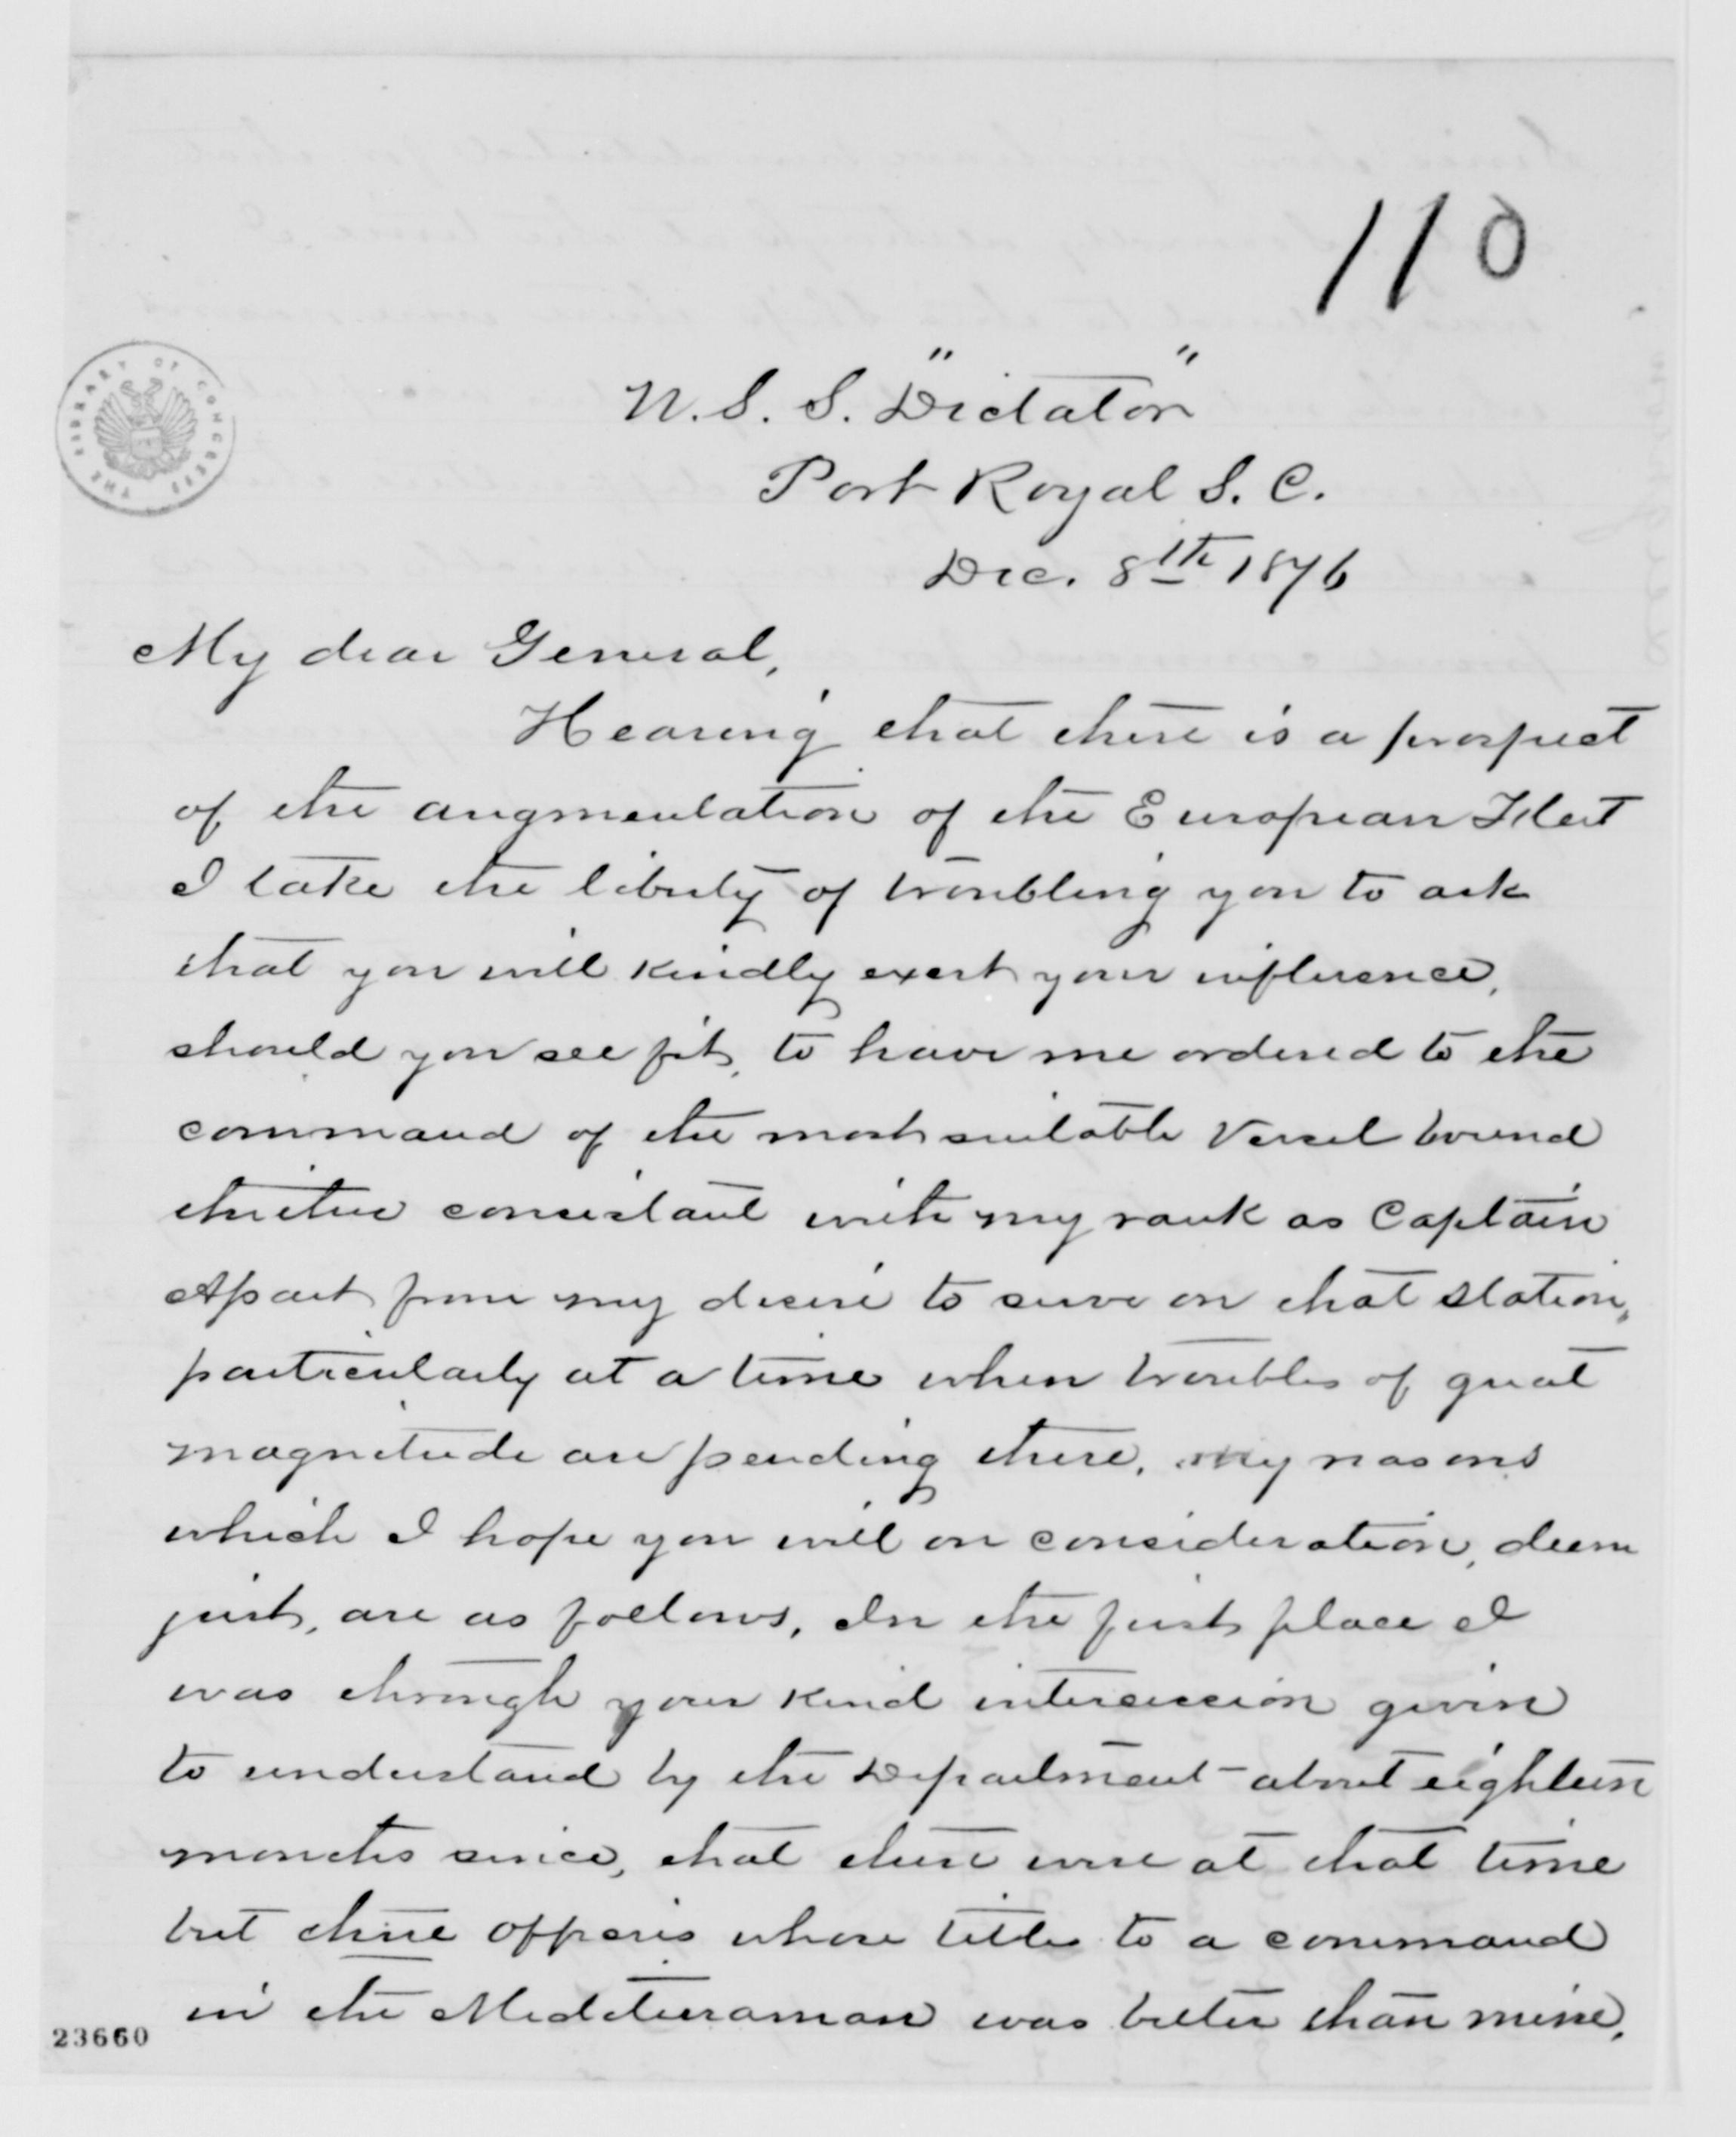 110
THE LIBRARY OF CONGRESS
U.S.S. "Dictator"
Port Royal S.C.
Dec. 8th 1876
My dear General,
Hearing that there is a prospect
of the augmentation of the European Fleet
I take the liberty of troubling you to ask
that you will kindly exert your influence,
should you see fit, to have me ordered to the
command of the most suitable Vessel bound
thither consistant with my rank as Captain
Apart from my desire to serve on that Station,
particularly at a time when troubles of great
magnitude are pending there, my reasons
which I hope you will on consideration, deem
just, are as follows, In the first place I
was through your kind intercession given
to understand by the Department - about eighteen
months since, that there were at that time
but three officers whose titles to a command
in the Mediterranean was better than mine,
23660